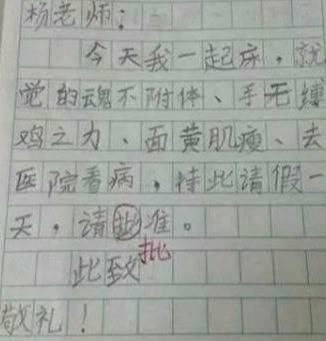 杨老师：
今天我一起床，就
觉的魂不附体、手无缚
鸡之力、面黄肌瘦、去
医院看病，特此请假一
天，请批准。
批
此致
敬礼！